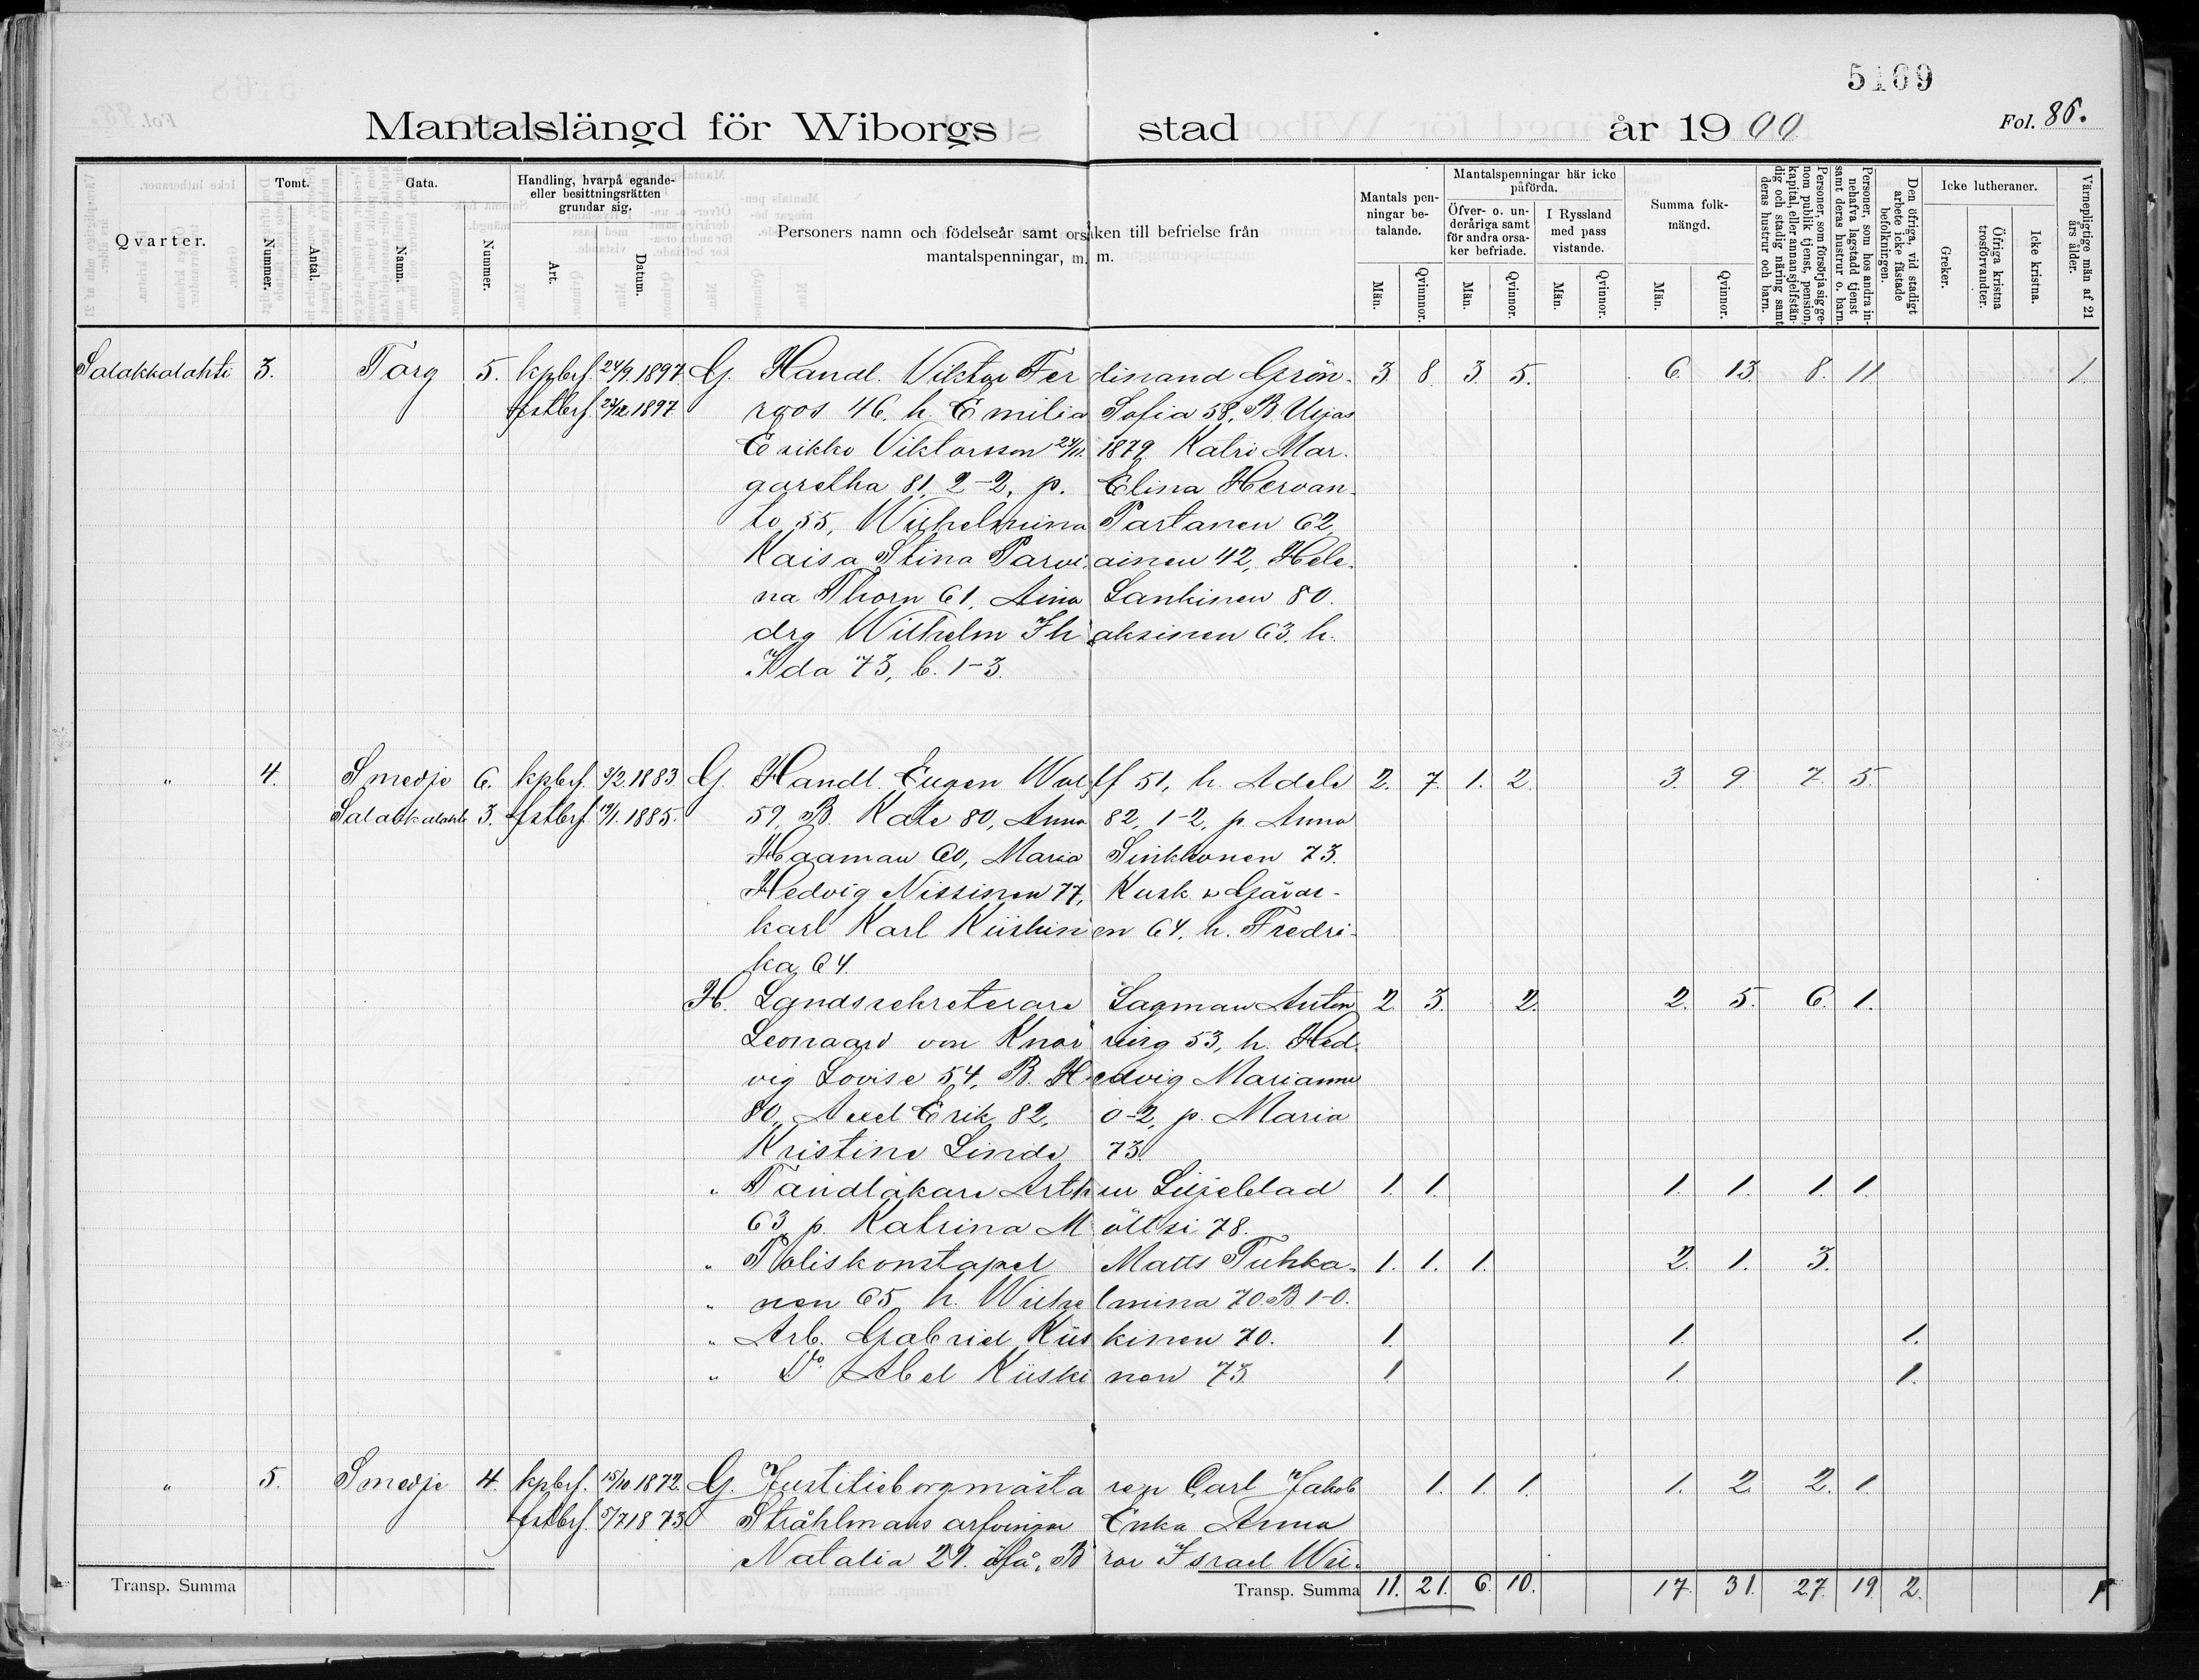 5169
Mantalslängd för Wiborgs stad år 1900 Fol. 86.
Qvarter. Tomt. Nummer. Antal. Gata. Namn. Nummer. Handling, hvarpå egande- eller besittningsrätten grundar sig. Art. Datum. Personers namn och födelseår samt orsaken till befrielse från mantalspenningar, m. m. Mantals penningar betalande. Män. Qvinnor. Mantalspenningar här icke påförda. Öfver- o. underåriga samt för andra orsaker befriade. Män. Qvinnor. I Ryssland med pass vistande. Män. Qvinnor. Summa folkmängd. Män. Qvinnor. Personer, som försörja sig genom publik tjenst, pension, kapital, eller annan sjelfständig och stadig näring samt deras hustrur och barn. Personer, som hos andra innehafva lagstadd tjenst samt deras hustrur o. barn. Den öfriga, vid stadigt arbete icke fästade befolkningen. Icke lutheraner. Greker. Öfriga kristna trosförvandter. Icke kristna. Värnepligtige män af 21 års ålder.
Salakkalahti 3. Torg 5. kpbrf. 24/9 1897 G. Handl. Viktor Ferdinand Grön- 3 8 3 5. 6 13 8. 11 1.
fstbrf. 1897 roos 46. h. Emilia Sofia 58, B. Urjas
Erikko Viktorsson 24/11. 1879 Katri Mar-
garetha 81, 2-2, p. Elina Hervan-
to 55, Wilhelmina Partanen 62,
Kaisa Stina Parviainen 42, Hele-
na Thorn 61, Aina Lankinen 80.
drg Wilhelm Ihaksinen 63. h.
Ida 73, b. 1-3.
" 4. Smedje 6. kpbrf. 3/2 1883. G. Handl. Eugen Wolff 51, h. Adele 2. 7. 1. 2. 3. 9. 7. 5.
Salakkalahti 3. fstbrf. 19/1. 1885. 59, B. Kate 80, Anna 82, 1-2, p. Anna
Haaman 60, Maria Sinkkonen 73.
Hedvig Nissinen 77, Kusk o Gårds-
karl Karl Kiiskinen 64, h. Fredri-
ka 64.
H. Landssekreterare Lagman Anton 2. 3. 2. 2. 5. 6. 1.
Leonard von Knorring 53, h. Hed-
vig Lovise 54, B. Hedvig Marianne
80, Axel Erik 82, 0-2, p. Maria
Kristina Linde 73.
" Tandläkare Arthur Liljeblad 1. 1. 1. 1. 1. 1.
63 p. Katrina Möllsi 78.
" Poliskonstapel Matts Tuhka- 1. 1. 1. 2. 1. 3.
" nen 65 h. Wilhelmina 70. B 1-0.
" Arb. Gabriel Kiiskinen 70. 1. 1. 1.
" Do. Abel Kiiskinen 73. 1 1. 1.
" 5. Smedje 4. kpbrf. 15/10 1872. G. Justitieborgmästaren Carl Jakob 1. 1. 1. 1. 2 2. 1.
fstbrf. 5/7 1873 Stråhlmans arfvingar Enka Anna
Natalia 29. öfå, B ror Israel Wil-
Transp. Summa Transp. Summa 11. 21. 6. 10. 17. 31. 27. 19. 2. 1